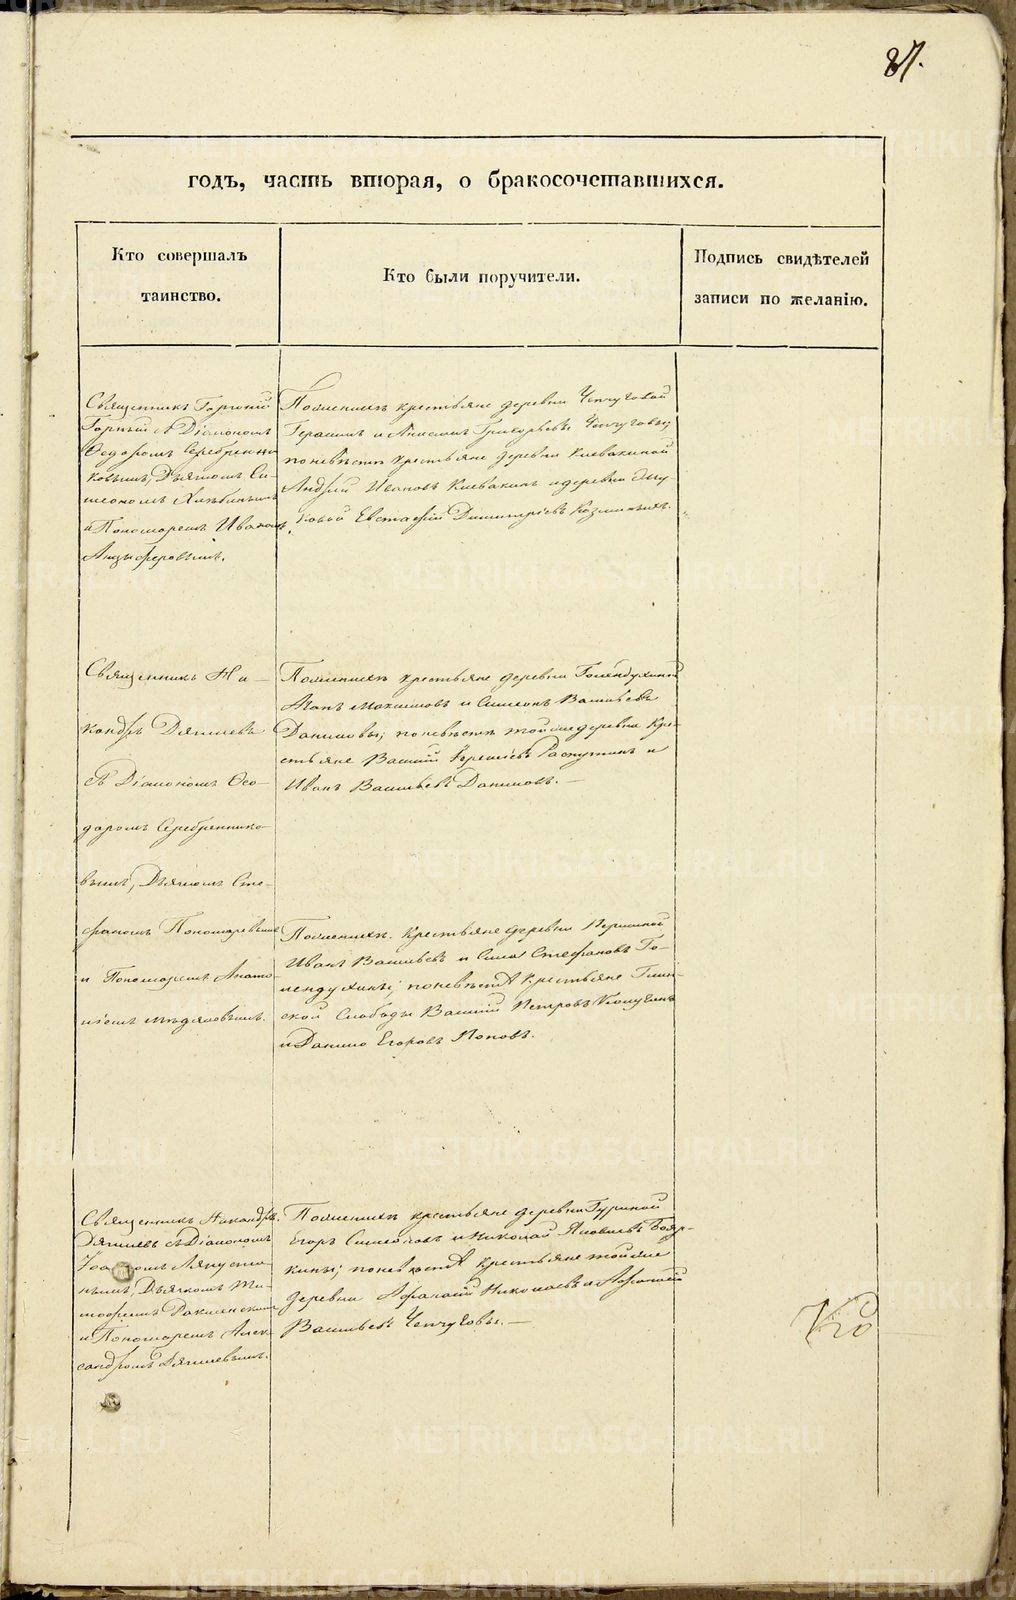 87.
годъ, часть вторая, о бракосочетавшихся.
Кто совершалъ
таинство.
Кто были поручители.
Подпись свидѣтелей
записи по желанію.
Священникъ Горгоній
Горный съ Діакономъ
Ѳедоромъ Серебренни
ковымъ, Дьячкомъ Си
меономъ
и Пономаремъ Иваномъ
Анцыферовымъ.
По женихѣ крестьяне деревни Чепчуговой
Герасимъ и Анисимъ Григорьевы Чепчуговы;
по невѣстѣ крестьяне деревни
Андрей Ивановъ и деревни
ковой Евстафій Димитріевъ Козминыхъ.
Священникъ Ни-
кандръ Дягилевъ
съ Діакономъ Ѳео-
доромъ Серебреннико-
вымъ, Дьячкомъ Сте-
фаномъ Пономаревымъ
и Пономаремъ Анато-
ліемъ Мѣдяковымъ.
По женихѣ крестьяне деревни Голендухиной
Максимовъ и Симеонъ Васильевъ
Даниловы; по невѣстѣ той же деревни кре-
стьяне Василій Распутинъ и
Иванъ Васильевъ Даниловъ. —
По женихѣ крестьяне деревни Першиной
Иванъ Васильевъ и Сила Стефановъ Го-
лендухины; по невѣстѣ крестьяне Глин-
ской Слободы Василій Петровъ
и Данило Егоровъ Поповъ.
Священникъ Никандръ
Дягилевъ съ Діакономъ
Іоанномъ Ляпусти-
нымъ, Дьячкомъ Ти-
мофеемъ
и Пономаремъ Алек-
сандромъ Дягилевымъ.
По женихѣ крестьяне деревни Гуриной
Егоръ Симеоновъ и Николай Яковлевъ Бояр-
кины; по невѣстѣ крестьяне той же
деревни Афанасій Николаевъ и
Васильевъ Чепчуговы. —
METRIKI.GASO-URAL.RU